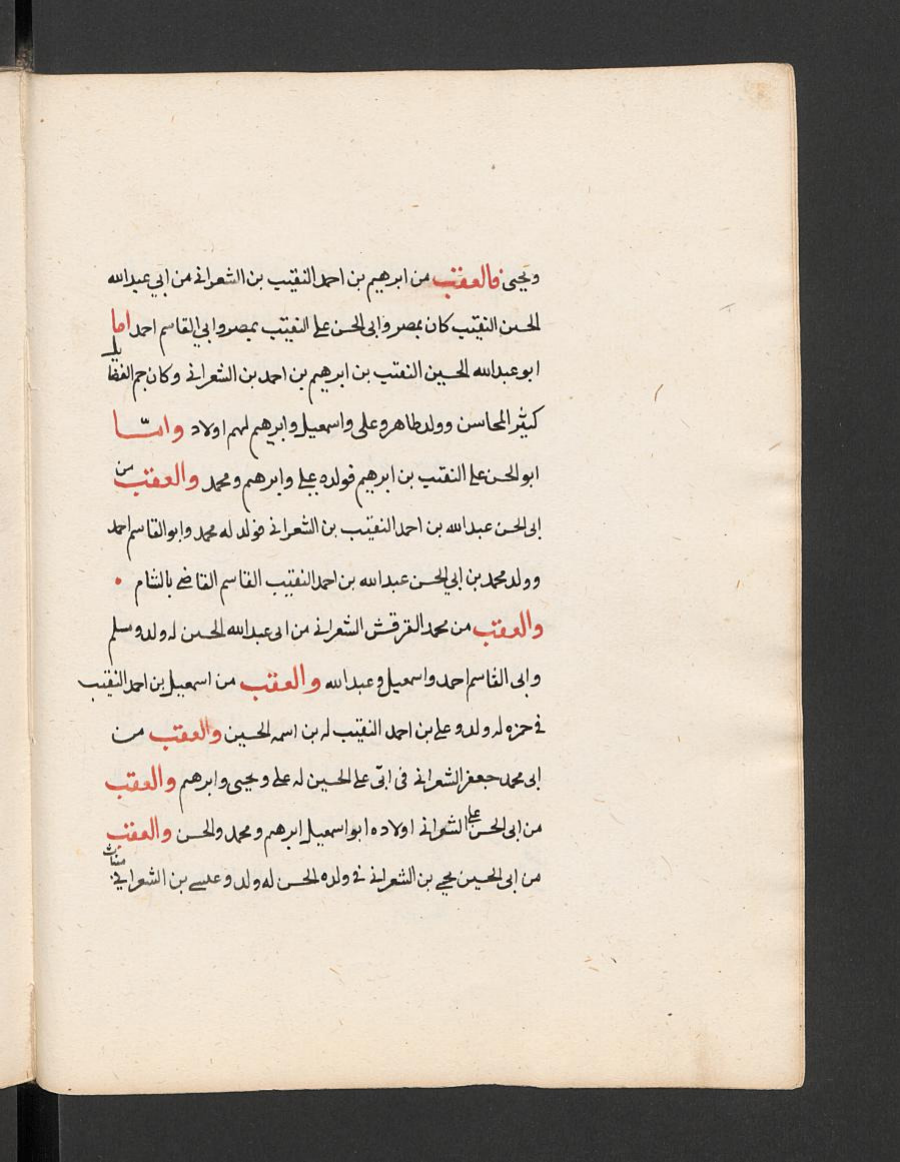 ويحيى فالعقب من ابرهيم بن احمد النقيب بن الشعرانى من ابي عبدالله
الحسين النقيب كان بمصر وابى الحسن على النقيب بمصر وابي القاسم احمد اما
ابو عبدالله الحسين النقيب بن ابرهيم بن احمد بن الشعرانى وكان جم الفضايل
كثير المحاسن وولد طاهر وعلى واسمعيل وابرهيم لهم اولاد وامّا
ابو الحسن على النقيب بن ابرهيم فولده على وابرهم ومحمد والعقب من
ابى الحسن عبدالله بن احمد النقيب بن الشعرانى فولد له محمد وابو القاسم احمد
وولد محمد بن ابي الحسن عبدالله بن احمد النقيب القاسم القاضى بالشام
والعقب من محمد الشعرانى من ابى عبدالله الحسين له ولد ومسلم
وابى القاسم احمد واسمعيل وعبدالله والعقب من اسمعيل بن احمد النقيب
فى حمزه له ولد وعلى بن احمد النقيب له بن اسمه الحسين والعقب من
ابى محمد جعفر الشعرانى فى ابى على الحسين له على ويحيى وابرهم والعقب
من ابى الحسن على الشعرانى اولاده ابو اسمعيل ابرهم ومحمد والحسن والعقب
من ابى الحسين يحيى بن الشعرانى فى ولده الحسن له ولد وعيسى بن الشعراني